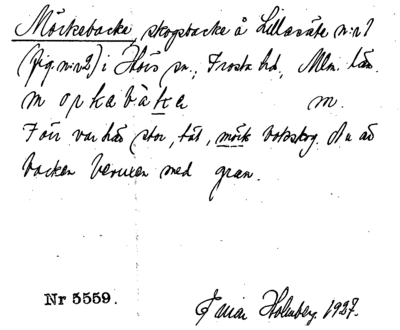 Mörkebacke, skogsbacke å Lillasäte n:r 1
(fig. n:r 2) i Hörs sn., Frosta hd., Mlm. län.
m ɔrkabàka m.
Förr var här stor, tät, mörk bokskog. Nu är
backen bevuxen med gran.
Nr 5559.
Ingvar Holmberg. 1927.